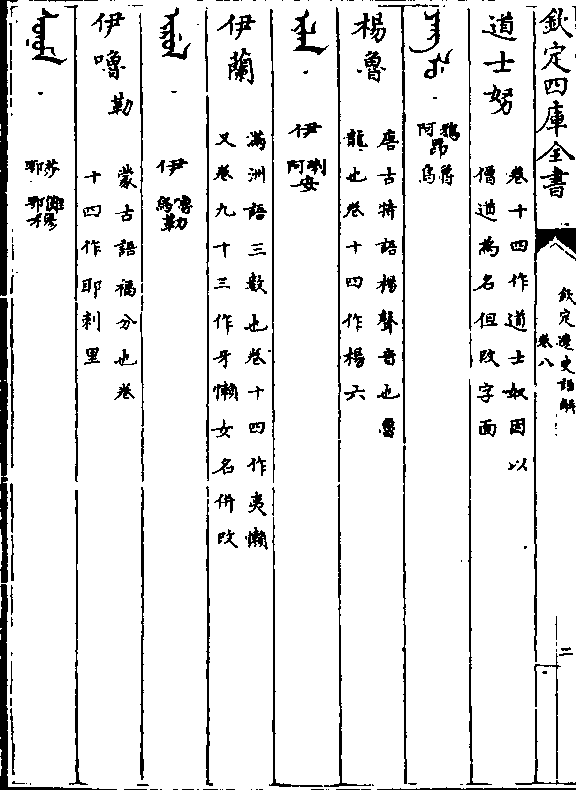 欽定四庫全書
欽定遼史語解
卷八
二
道士努
卷十四作道士奴因以
僧道為名但改字面
ᠶᠠᠩ ᠯᡠ
鴉阿昂
魯烏
楊魯
唐古特語楊聲音也魯
龍也卷十四作楊六
ᡳᠯᠠᠨ
伊
喇阿安
伊蘭
滿洲語三數也卷十四作夷懶
又卷九十三作牙懶女名併改
ᡳᡵᡠᠯ
伊
嚕烏勒
伊嚕勒
蒙古語福分也卷
十四作耶剌里